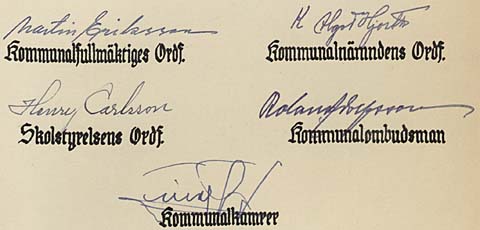 Martin Eriksson
Kommunalfullmäktiges Ordf.
K Hjorth
Kommunalnämndens Ordf.
Henry Carlsson
Skolstyrelsens Ordf.
Roland
Kommunalombudsman
Kommunalkamrer